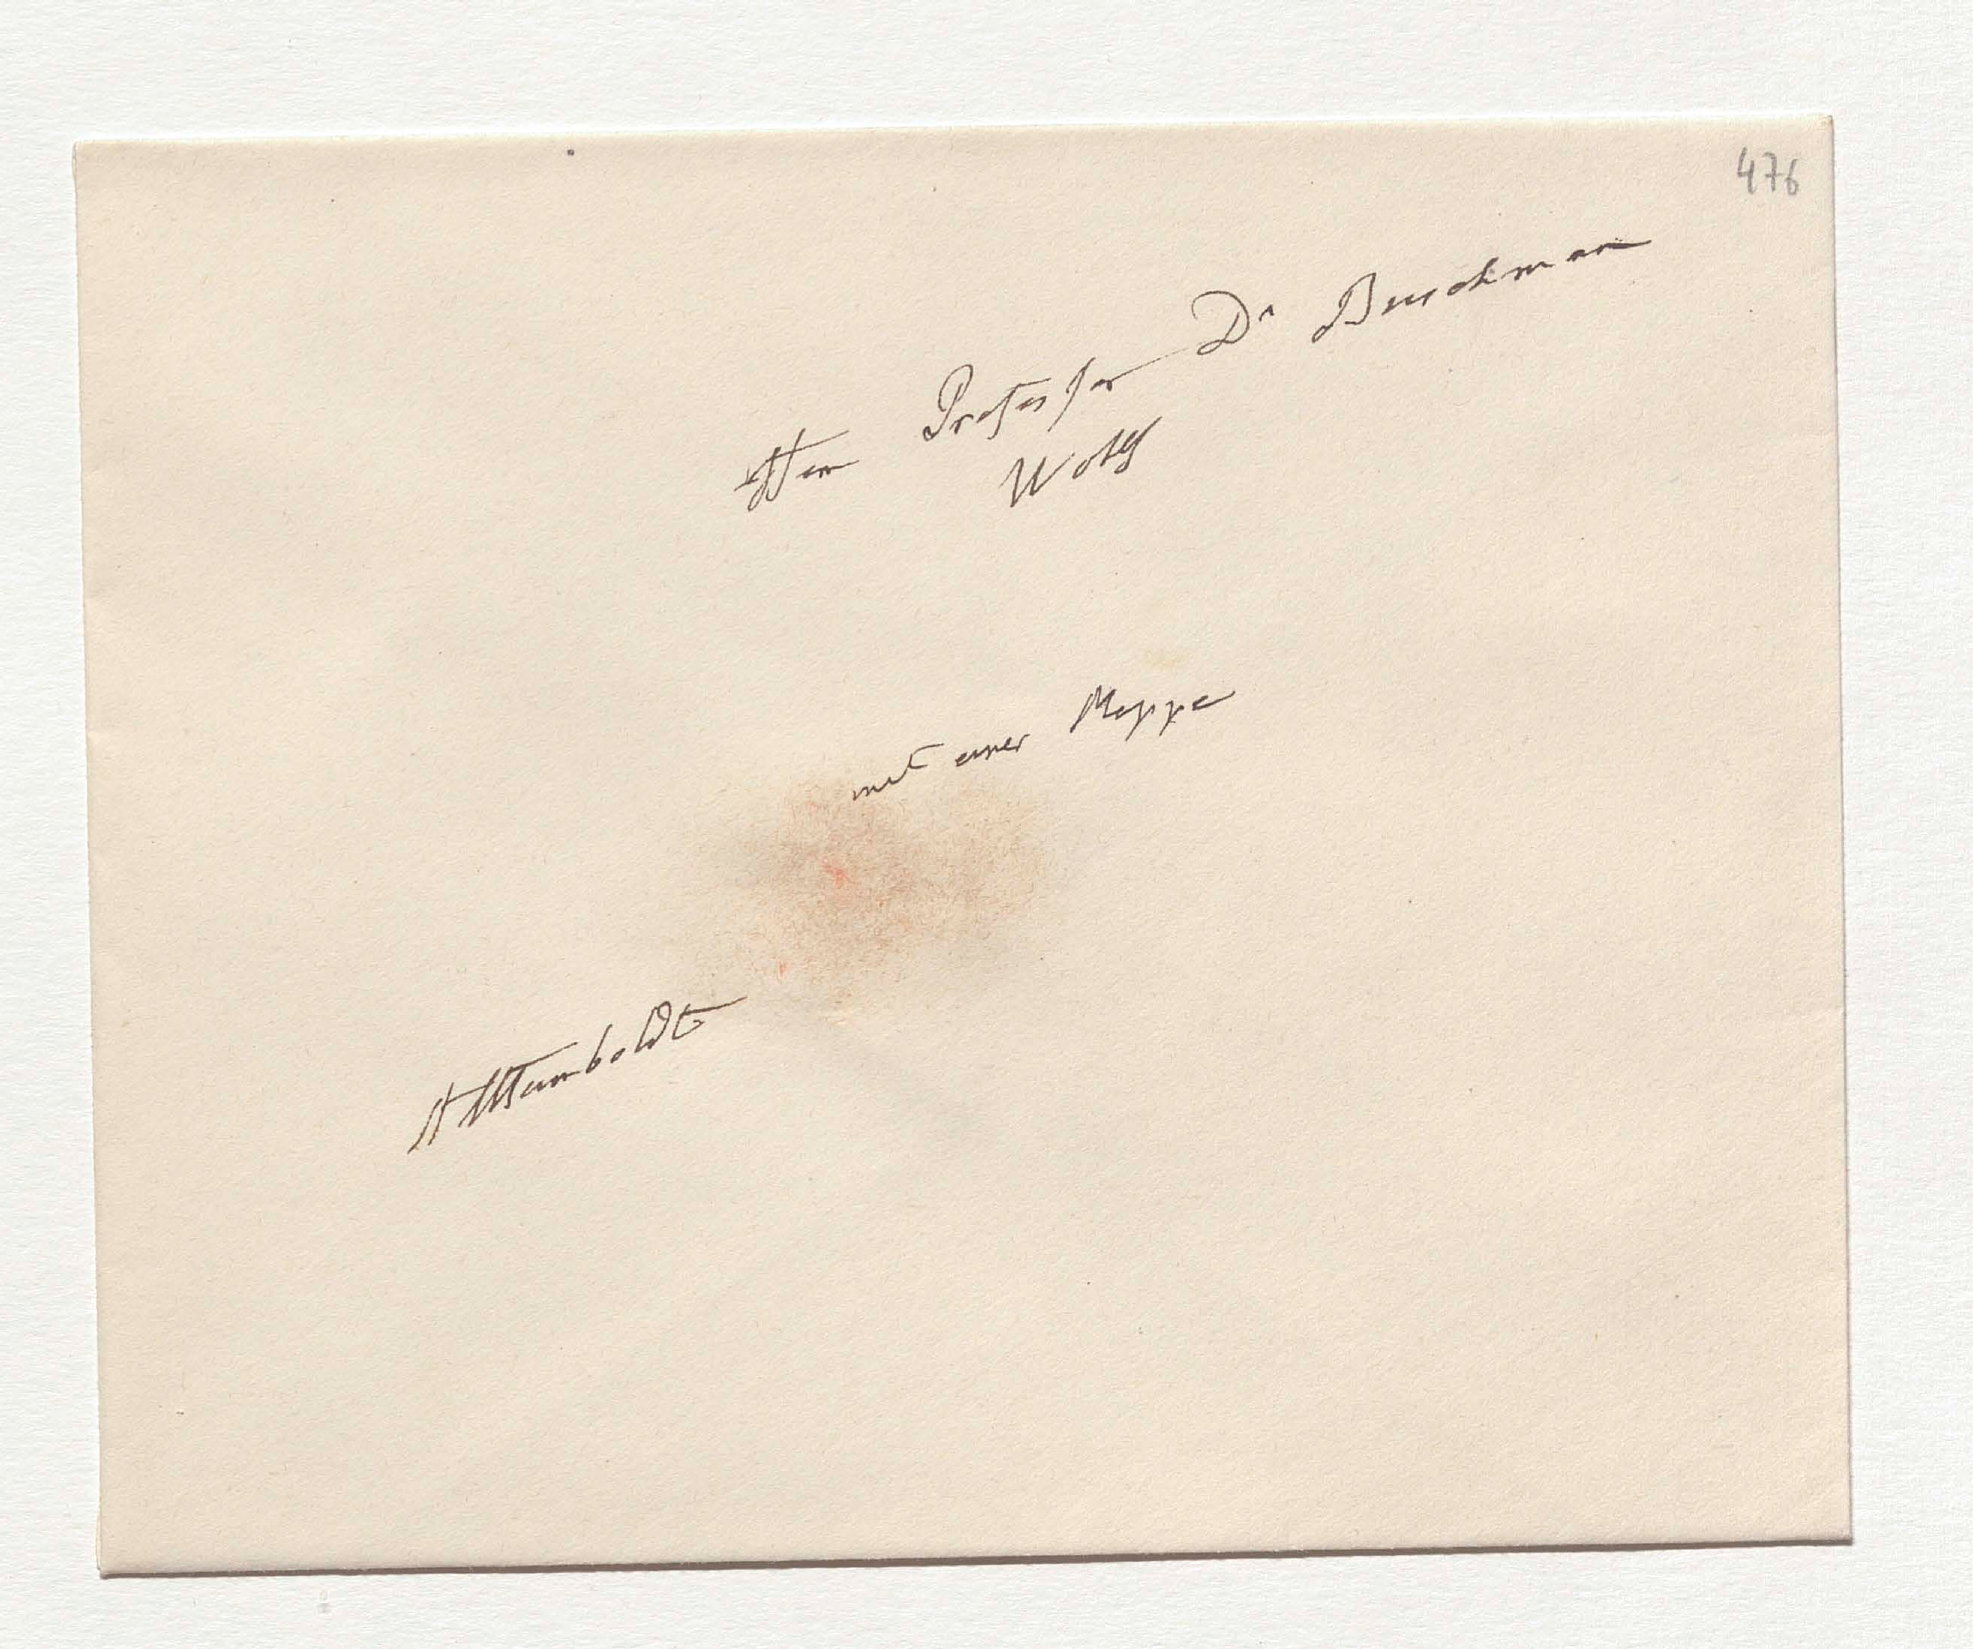 476
Herrn Professor Dr Buschmann
Wohlg
mit einer Mappe
AvHumboldt